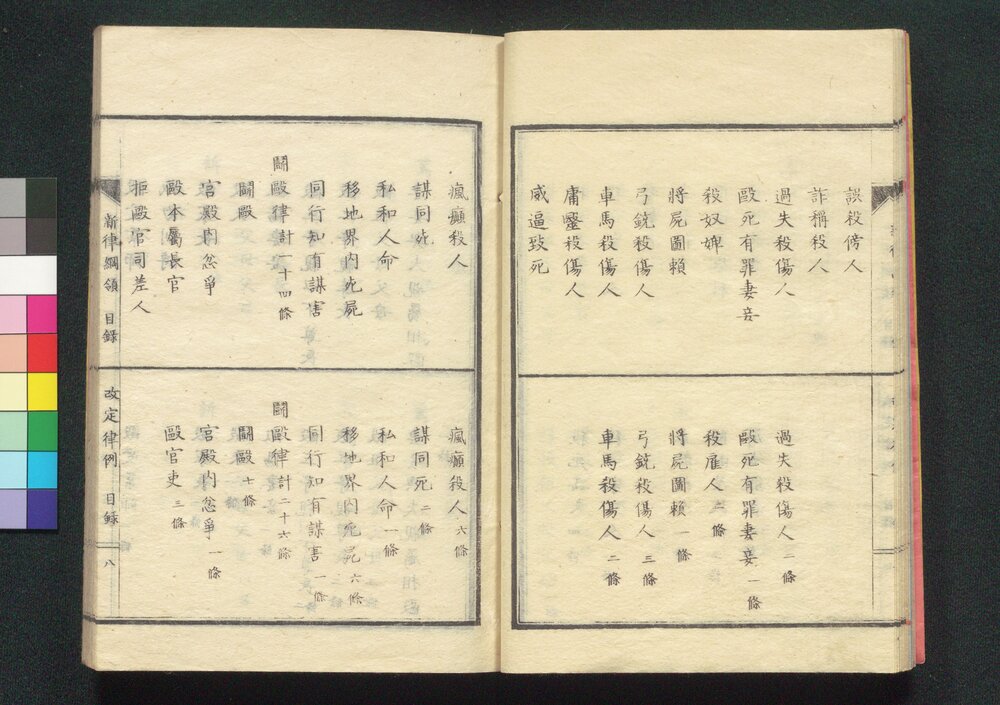 誤殺傍人
詐稱殺人
過失殺傷人
毆死有罪妻妾
殺奴婢
將屍圖賴
弓銃殺傷人
車馬殺傷人
庸醫殺傷人
威逼致死
過失殺傷人 二條
毆死有罪妻妾 一條
殺雇人 二條
將屍圖賴 一條
弓銃殺傷人 三條
車馬殺傷人 二條
瘋癲殺人
謀同死
私和人命
移地界內死屍
同行知有謀害
鬪毆律計一十四條
鬪毆
宮殿內忿爭
毆本屬長官
拒毆官司差人
瘋癲殺人 六條
謀同死 二條
私和人命 一條
移地界內死屍 六條
同行知有謀害 一條
鬪毆律計二十六條
鬪毆 十條
宮殿內忿爭 一條
毆官吏 三條
新律綱領 目錄 改定律例 目錄 八